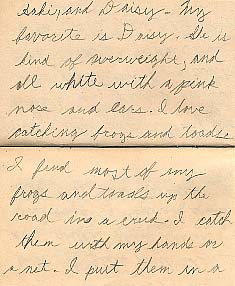 and Daisy. My
favorite is Daisy. He is
kind of overweight, and
all white with a pink
nose and ears. I love
catching frogs and toads.
I find most of my
frogs and toads up the
road in a I catch
them with my hands or
a net. I putt them in a